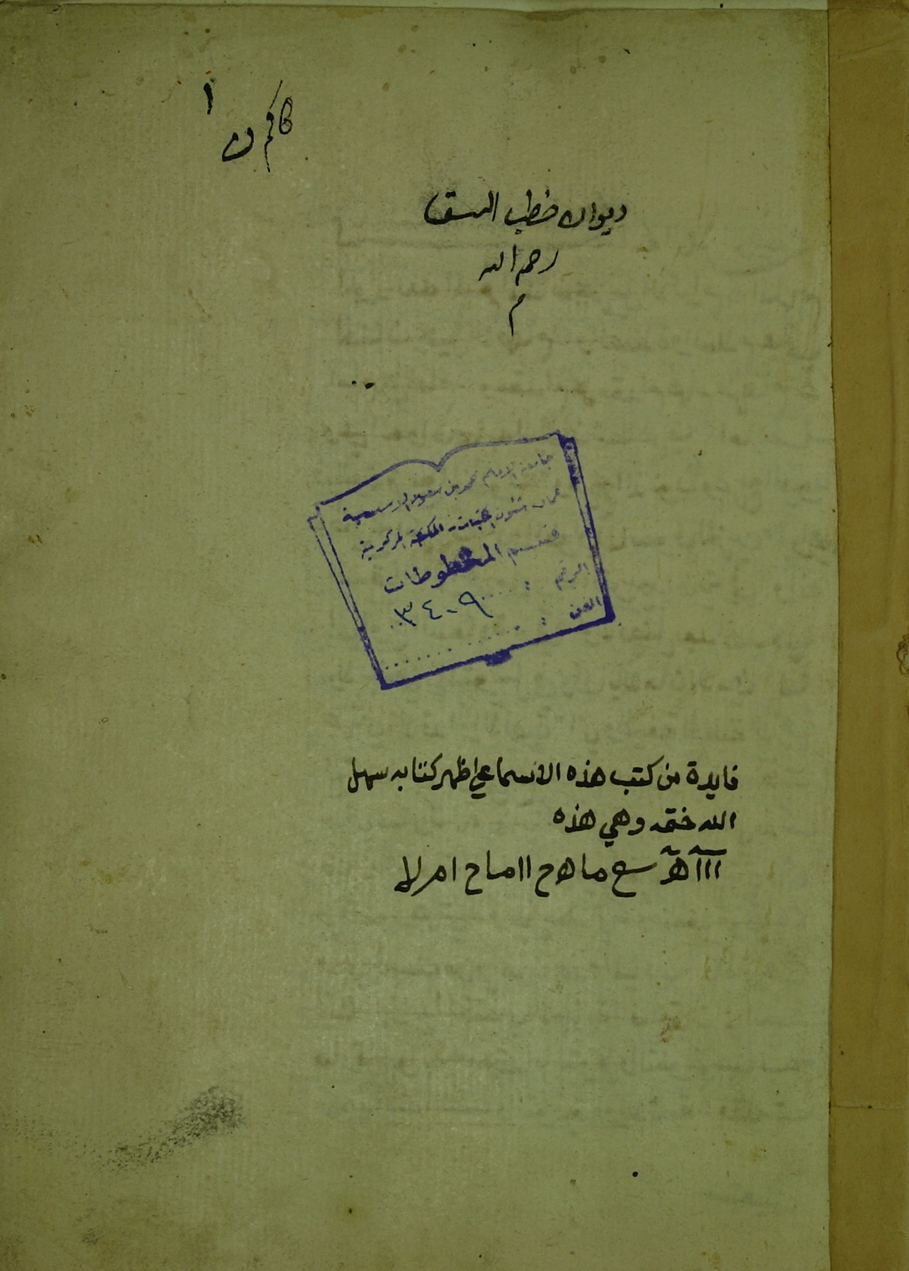 ١
ديوان خطب السقا
رحم الله
م
جامعة الإمام محمد بن سعود الإسلامية
عمادة شئون المكتبات - المكتبة المركزية
قسم المخطوطات
الرقم : ٣٤٠٩
الفن :
فايدة من كتب هذه الاسما على ظهر كتابه سهل
الله ختمه وهي هذه
ااا ماهح ااماح امرلا